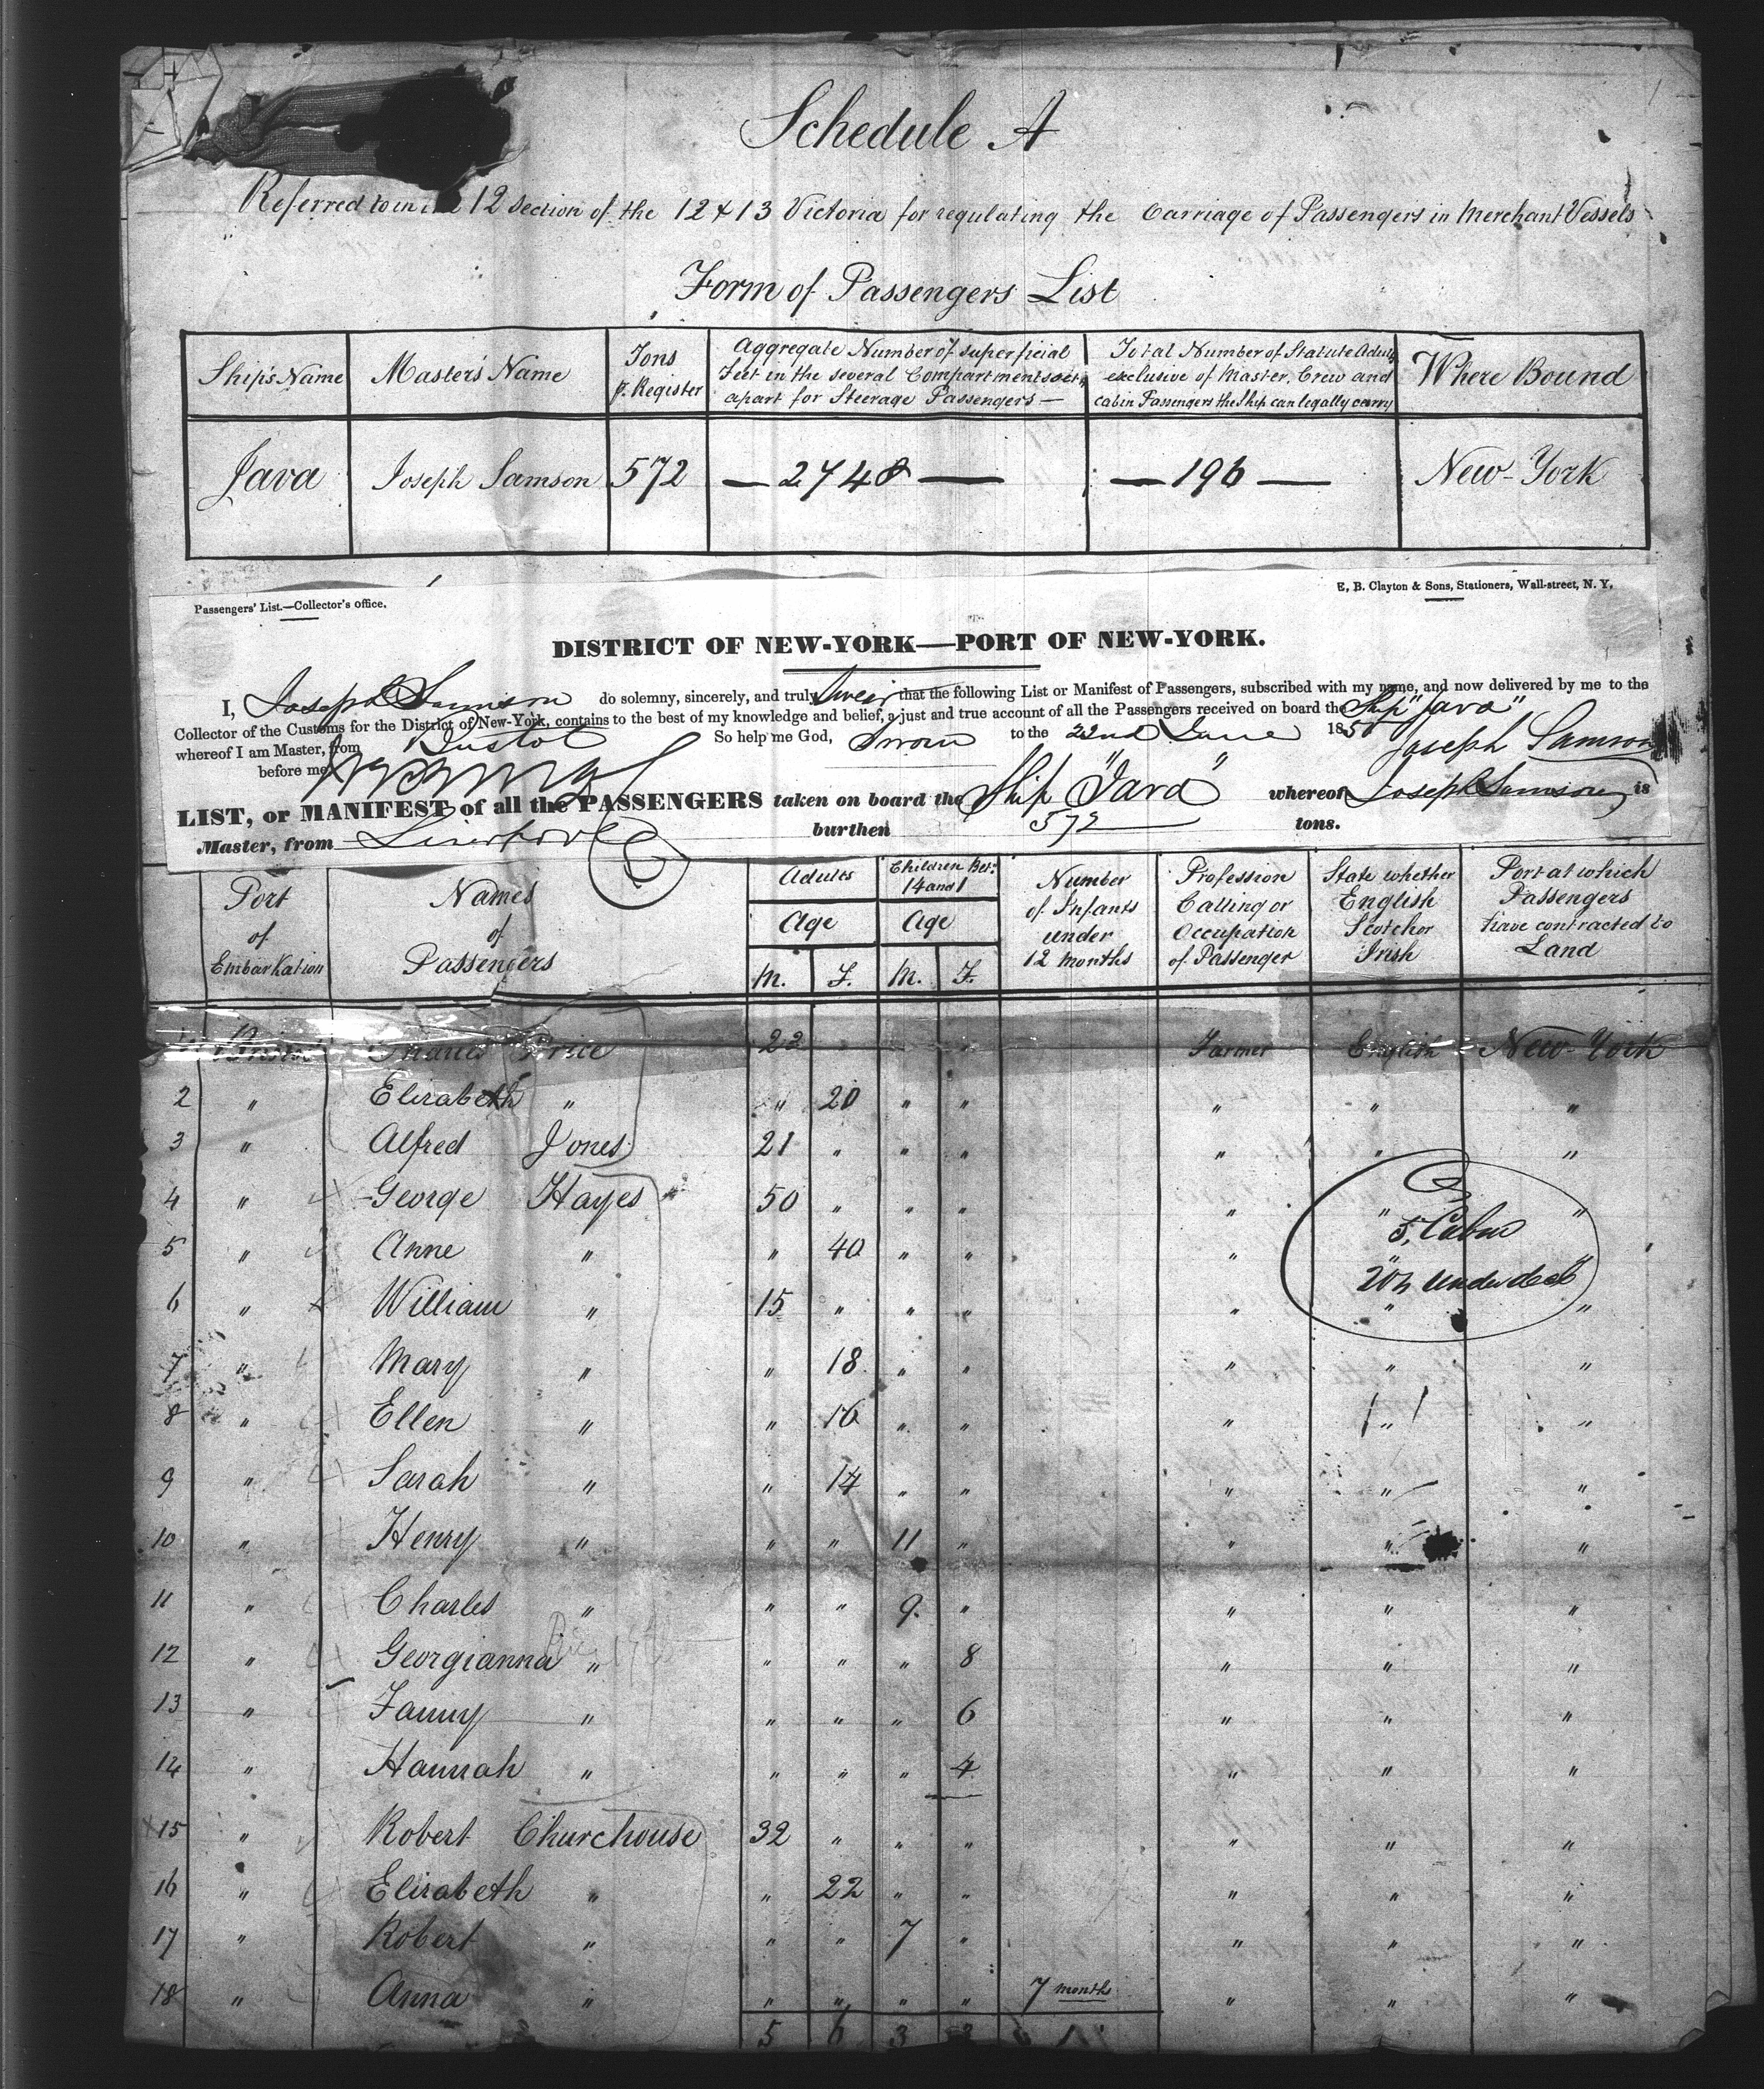 Schedule A
Referred to in the 12 Section of the 12 & 13 Victoria for regulating the Carriage of Passengers in Merchant Vessels
Form of Passengers List
Ship's Name | Master's Name | Tons p. Register | Aggregate Number of superficial Feet in the several Compartments set apart for Steerage Passengers — | Total Number of Statute Adults exclusive of Master, Crew and Cabin Passengers the Ship can legally carry | Where Bound
Java | Joseph Samson | 572 | — 2748 — | — 196 — | New-York
Passengers' List.—Collector's office.
E. B. Clayton & Sons, Stationers, Wall-street, N. Y.
DISTRICT OF NEW-YORK—PORT OF NEW-YORK.
I, Joseph Samson do solemny, sincerely, and truly Swear that the following List or Manifest of Passengers, subscribed with my name, and now delivered by me to the
Collector of the Customs for the District of New-York, contains to the best of my knowledge and belief, a just and true account of all the Passengers received on board the Ship "Java"
whereof I am Master, from Bristol So help me God, Sworn to the 22nd June 185
before me Joseph Samson
LIST, or MANIFEST of all the PASSENGERS taken on board the Ship "Java" whereof Joseph Samson is
Master, from Liverpool burthen 572 tons.
Port of Embarkation | Names of Passengers | Adults Age M. F. | Children Betn. 14 and 1 Age M. F. | Number of Infants under 12 Months | Profession Calling or Occupation of Passenger | State whether English Scotch or Irish | Port at which Passengers have contracted to Land
Price 22 Farmer English New-York
2 " Elizabeth " " 20 " " " " "
3 " Alfred Jones 21 " " " " " "
4 " George Hayes 50 " " " " " "
5, Cabin
5 " Anne " " 40 " " " " "
under deck
6 " William " 15 " " " " " "
7 " Mary " " 18 " " " " "
8 " Ellen " " 16 " " " " "
9 " Sarah " " 14 " " " " "
10 " Henry " " " 11 " " " "
11 " Charles " " " 9 " " " "
12 " Georgianna " " " " 8 " " "
13 " Fanny " " " " 6 " " "
14 " Hannah " " " " 4 " " "
15 " Robert Churchouse 32 " " " " " "
16 " Elizabeth " " 22 " " " " "
17 " Robert " " " 7 " " " "
18 " Anna " " " " " 7 months " " "
5 6 3 3 1